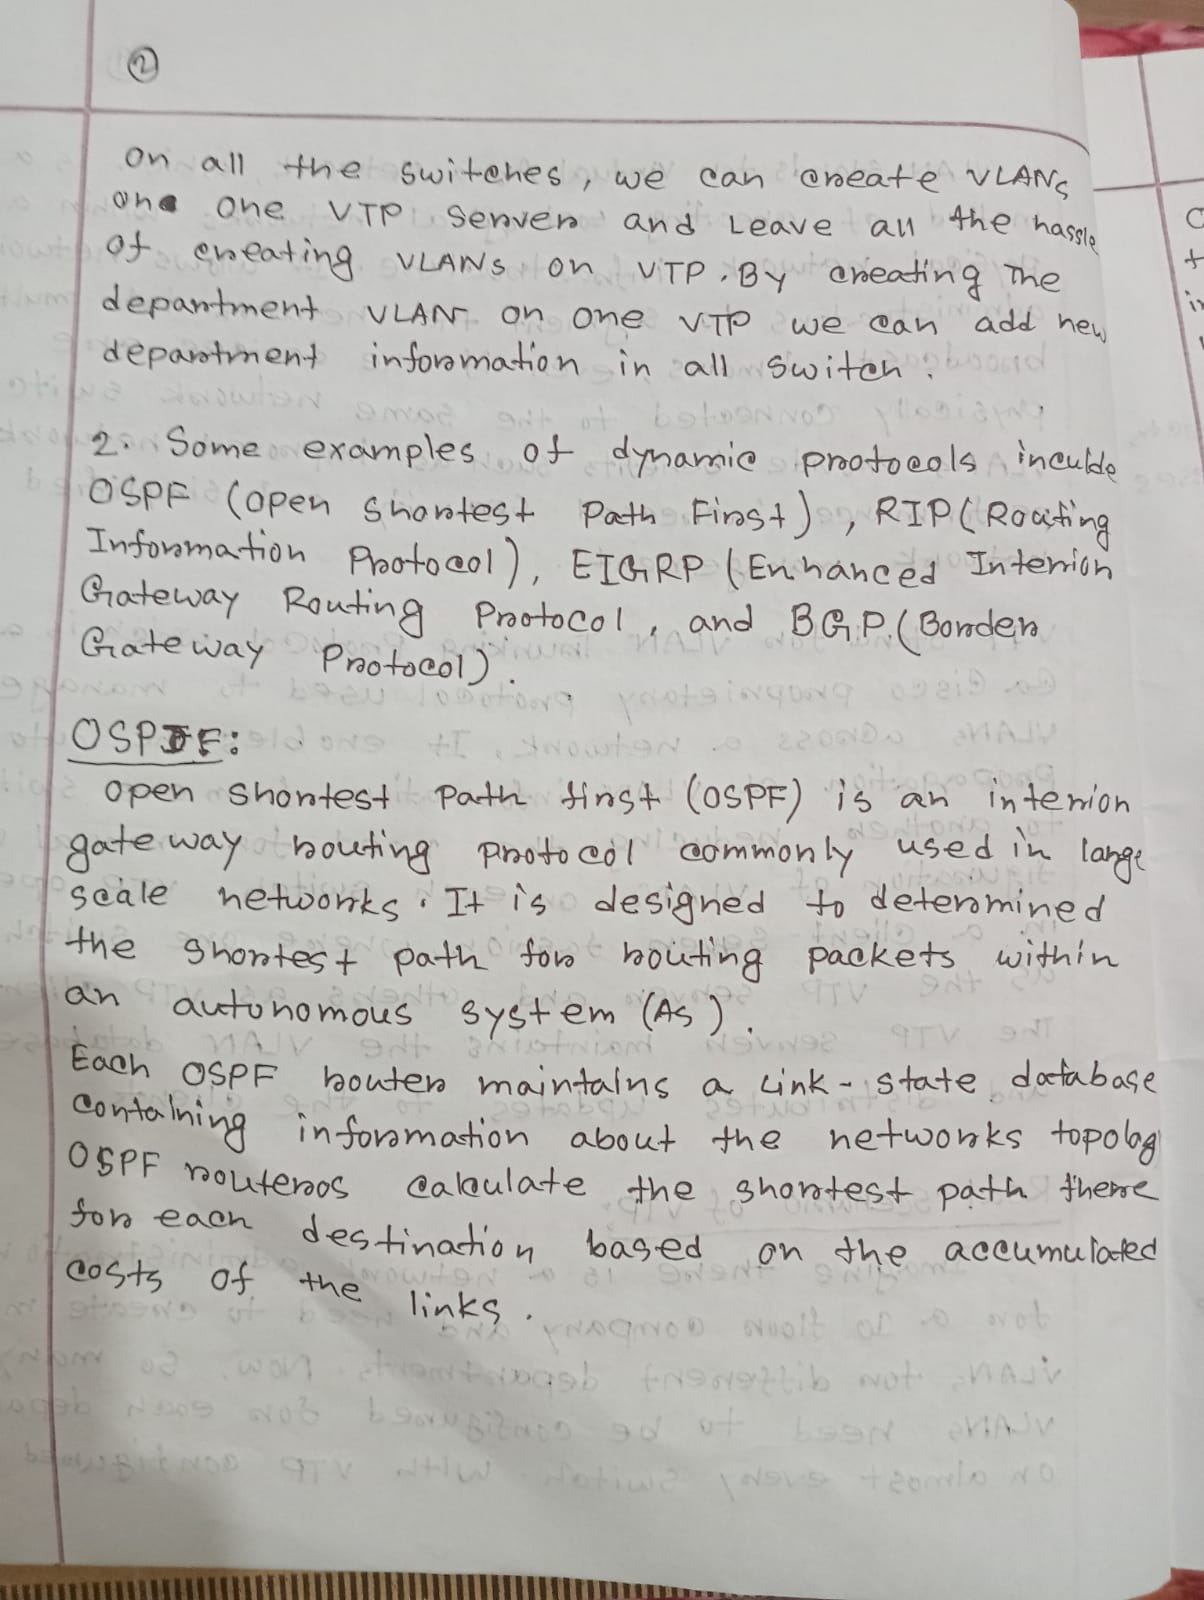 ②
on all the switches, we can create VLANs
on one VTP server and leave all the hassle
of creating VLANs on VTP. By creating The
department VLAN on one VTP we can add new
department information in all switch.
2. Some examples of dynamic protocols inculde
OSPF (open shortest Path First), RIP (Routing
Information Protocol), EIGRP (Enhanced Interior
Gateway Routing Protocol, and BGP. (Border
Gateway Protocol).
OSPF:
open shortest path first (OSPF) is an interior
gateway routing protocol commonly used in large
scale networks. It is designed to determined
the shortest path for routing packets within
an autonomous system (As).
Each OSPF router maintains a Link-state database
containing information about the networks topolog
OSPF routeros calculate the shortest path there
for each destination based on the accumulated
costs of the links.